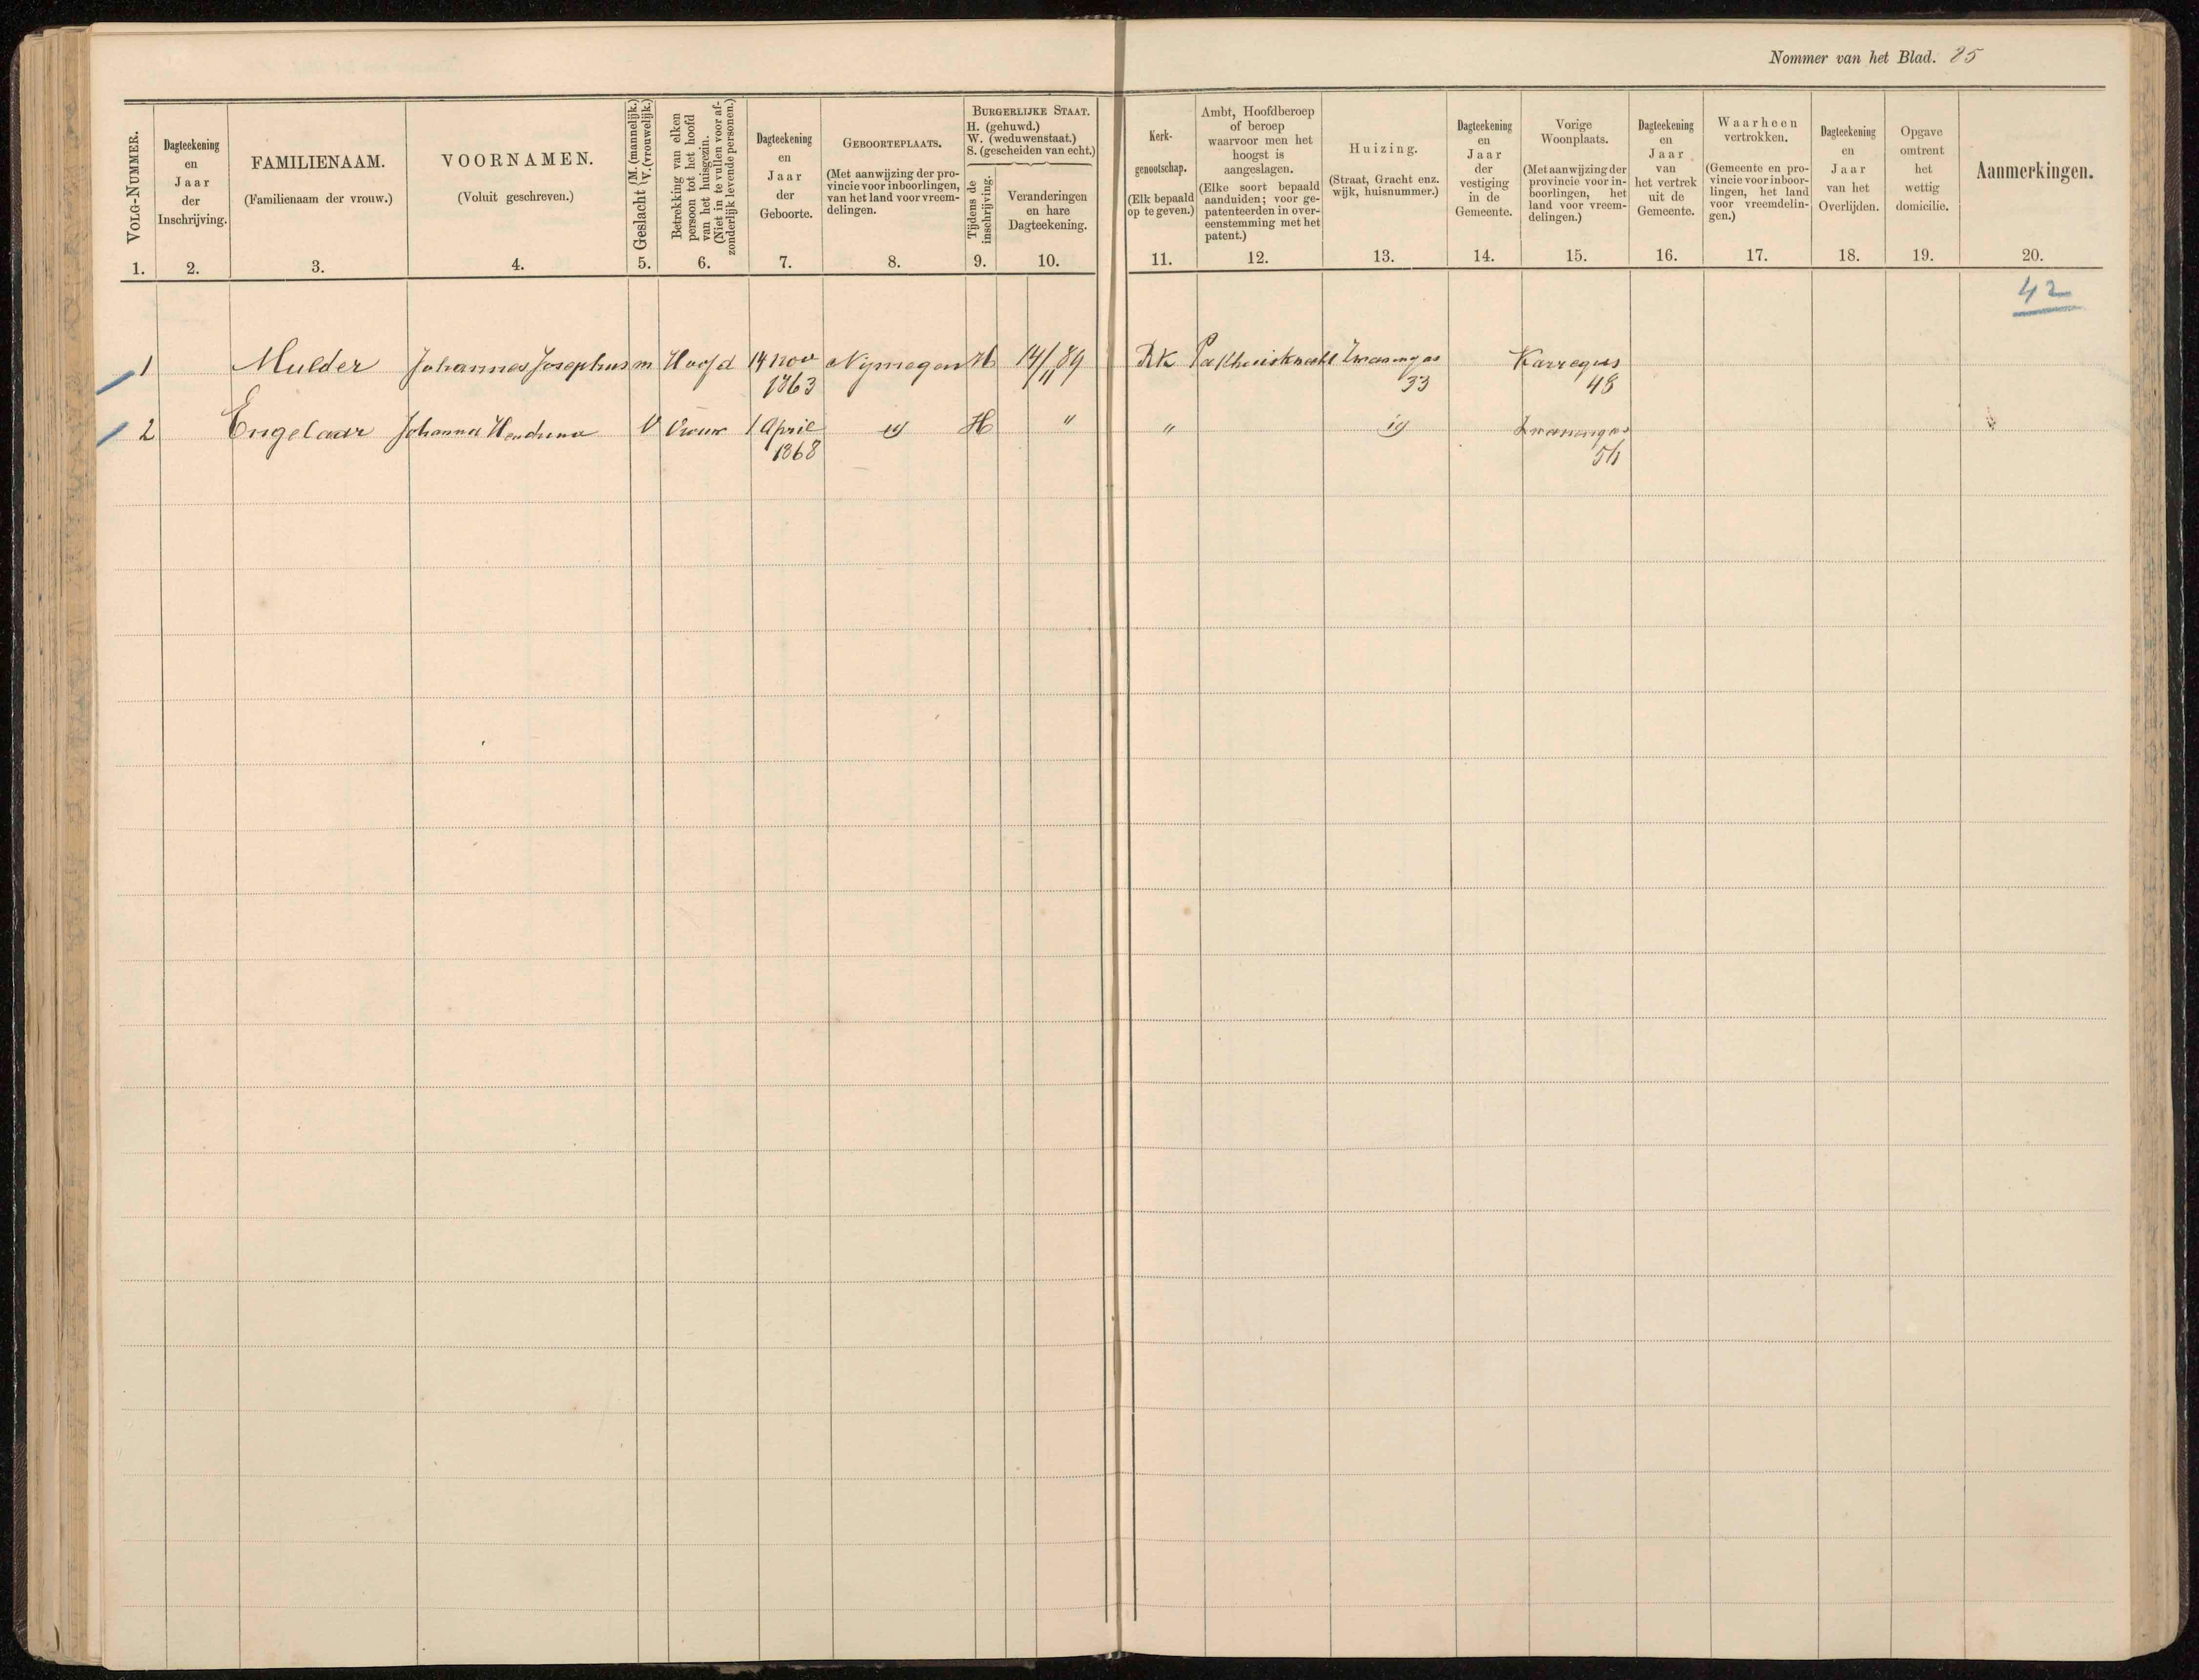 Nommer van het Blad. 85
VOLG-NUMMER.
1.
Dagteekening
en
Jaar
der
Inschrijving.
2.
FAMILIENAAM.
(Familienaam der vrouw.)
3.
VOORNAMEN.
(Voluit geschreven.)
4.
Geslacht (M. (mannelijk.) V. (vrouwelijk.)
5.
Betrekking van elken
persoon tot het hoofd
van het huisgezin.
(Niet in te vullen voor af-
zonderlijk levende personen.)
6.
Dagteekening
en
Jaar
der
Geboorte.
7.
GEBOORTEPLAATS.
(Met aanwijzing der pro-
vincie voor inboorlingen,
van het land voor vreem-
delingen.)
8.
BURGERLIJKE STAAT.
H. (gehuwd.)
W. (weduwenstaat.)
S. (gescheiden van echt.)
Tijdens de
inschrijving.
9.
Veranderingen
en hare
Dagteekening.
10.
Kerk-
genootschap.
(Elk bepaald
op te geven.)
11.
Ambt, Hoofdberoep
of beroep
waarvoor men het
hoogst is
aangeslagen.
(Elke soort bepaald
aanduiden; voor ge-
patenteerden in over-
eenstemming met het
patent.)
12.
Huizing.
(Straat, Gracht enz.
wijk, huisnummer.)
13.
Dagteekening
en
Jaar
der
vestiging
in de
Gemeente.
14.
Vorige
Woonplaats.
(Met aanwijzing der
provincie voor in-
boorlingen, het
land voor vreem-
delingen.)
15.
Dagteekening
en
Jaar
van
het vertrek
uit de
Gemeente.
16.
Waarheen
vertrokken.
(Gemeente en pro-
vincie voor inboor-
lingen, het land
voor vreemdelin-
gen.)
17.
Dagteekening
en
Jaar
van het
Overlijden.
18.
Opgave
omtrent
het
wettig
domicilie.
19.
Aanmerkingen.
20.
42
1 Mulder Johannes Josephus m Hoofd 14 nov Nijmegen H 14/11 89 RK Pakhuisknecht Zwanengas Karregas
1863 33 48
2 Engelaar Johanna Hendrina V Vrouw 1 April id H " " id Zwanengas
1868